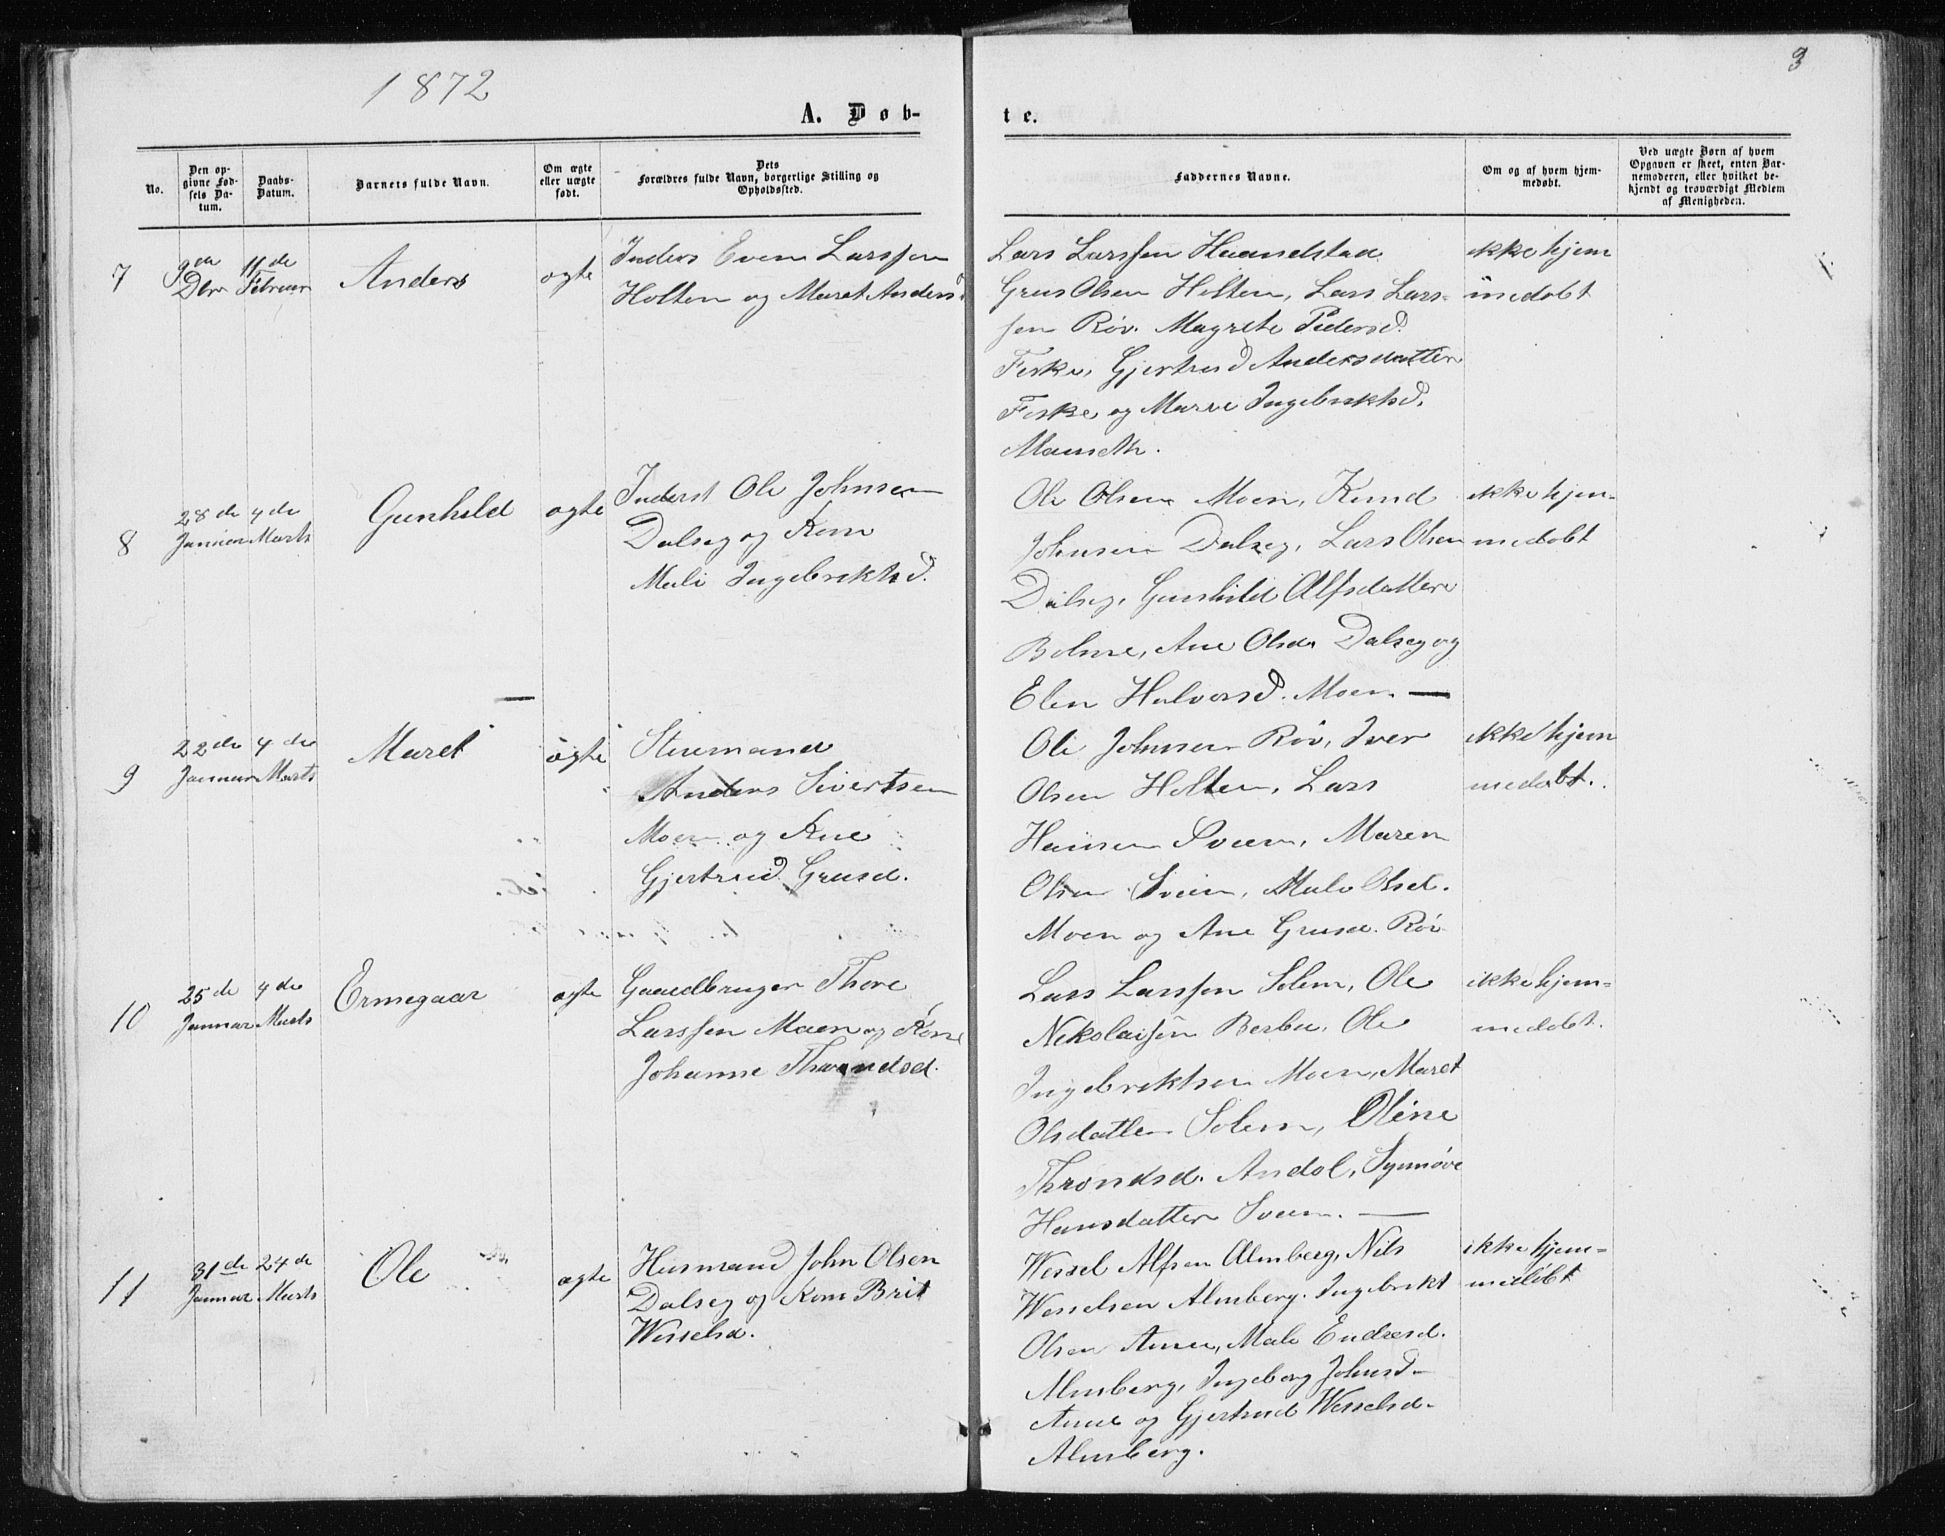 1872
3
A. Døb-
te.
No.
Den op-
givne Fød-
sels Da-
tum.
Daabs-
Datum.
Barnets fulde Navn.
Om ægte
eller uægte
født.
Dets
Forældres fulde Navn, borgerlige Stilling og
Opholdssted.
Faddernes Navne.
Om og af hvem hjem-
medøbt.
Ved uægte Børn af hvem
Opgaven er skeet, enten Bar-
nemoderen, eller hvilket be-
kjendt og troværdigt Medlem
af Menigheden.
7
9de
Dbr
11de
Februar
Anders
ægte
Inders Even Larssen
Holten og Maret Andersd.
Lars Larssen Haandstad
Grus Olsen Holten, Lars Lars-
sen Røv. Magrete Pedersd.
Feske, Gjertrud Andersdatter
Feske og Marre Ingebriktsd.
ikke hjem
medøbt
8
28de
Januar
4de
Marts
Gunhild
ægte
Inderst Ole Johnsen
Dalseg og Kone
Mali Ingebriktsd.
Ole Olsen Moen, Knud
Johnsen Dalseg, Lars Olsen
Dalseg, Gunhild Alfsdatter
Bolme, Ane Olsd. Dalseg og
Elen Halvorsd. Moen —
ikke hjem-
medøbt
9
22de
Januar
4de
Marts
Maret
ægte
Anders Sivertsen
Moen og Kne
Gjertrud Grusd.
Ole Johnsen Røv, Iver
Olsen Holten, Lars
Hansen Sveen, Maren
Olsen Sveen, Male Olsd.
Moen og Ane Grusd. Røv
ikke hjem
medøbt.
10
25de
Januar
4de
Marts
Ermegaar
ægte
Gaardbruger Thore
Larssen Moen og Kone
Johanne Throndsd.
Lars Larssen Solem, Ole
Nekolaisen Berbu, Ole
Ingebriktsen Moen, Maret
Olsdatter Solem, Oline
Throndsd. Andol, Synnøve
Hansdatter Sveen. —
ikke hjem-
medøbt.
11
31de
Januar
24de
Marts
Ole
ægte
Husmand John Olsen
Dalseg og Kone Brit
Wesselsd.
Wessel Alfsen Almberg, Nils
Wesselsen Almberg. Ingebrikt
Olsen Aune, Male Endresd.
Almberg, Ingeborg Johnsd
Aune og Gjertrud Wesselsd-
Almberg.
ikke hjem-
medøbt